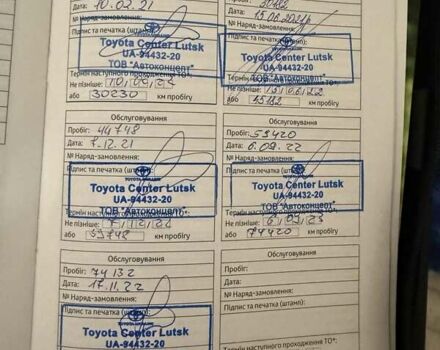 Дата: 10.02.21
№ Наряд-замовлення:
Підпис та печатка (штамп):
TOYOTA
Toyota Center Lutsk
UA-94432-20
ТОВ "Автоконцепт"
Термін наступного
Не пізніше:
або 30230 км пробігу
Дата:
№ Наряд-замовлення:
Підпис та печатка (штамп):
TOYOTA
Toyota Center Lutsk
UA-94432-20
ТОВ "Автоконцепт"
Термін наступного
Не пізніше: 15.06.22
або 45182 км пробігу
Обслуговування
Пробіг: 44748
Дата: 7.12.21
№ Наряд-замовлення:
Підпис та печатка (штамп):
Toyota Center Lutsk
UA-94432-20
ТОВ "Автоконцепт"
Термін наступного
Не пізніше:
або 59748 км пробігу
Обслуговування
Пробіг: 59420
Дата: 6.09.22
№ Наряд-замовлення:
Підпис та печатка (штамп):
Toyota Center Lutsk
UA-94432-20
ТОВ "Автоконцепт"
Термін наступного
Не пізніше: 6.09.23
або 74420 км пробігу
Обслуговування
Пробіг: 74132
Дата: 17.11.22
№ Наряд-замовлення:
Підпис та печатка (штамп):
Toyota Center Lutsk
UA-94432-20
Обслуговування
Пробіг:
Дата:
№ Наряд-замовлення:
Підпис та печатка (штамп):
Термін наступного проходження ТО*: